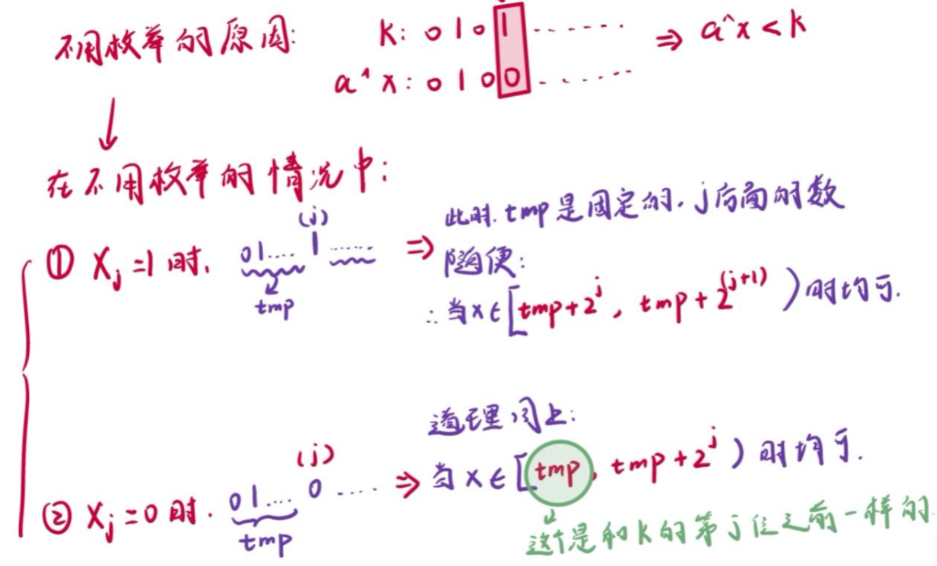 不用枚举的原因:
k: 0 1 0 1 ······· ⇒ a^x < k
a^x: 0 1 0 0 ·······
在不用枚举的情况中:
① Xj=1时. 01.... 1 ...... ⇒
(j)
tmp
此时. tmp是固定的. j后面的数
随便:
∴当x∈[tmp+2^j, tmp+2^(j+1))时均可.
② Xj=0时. 01.... 0 .... ⇒
(j)
tmp
道理同上:
当x∈[tmp, tmp+2^j)时均可.
这个是和k的第j位之前一样的